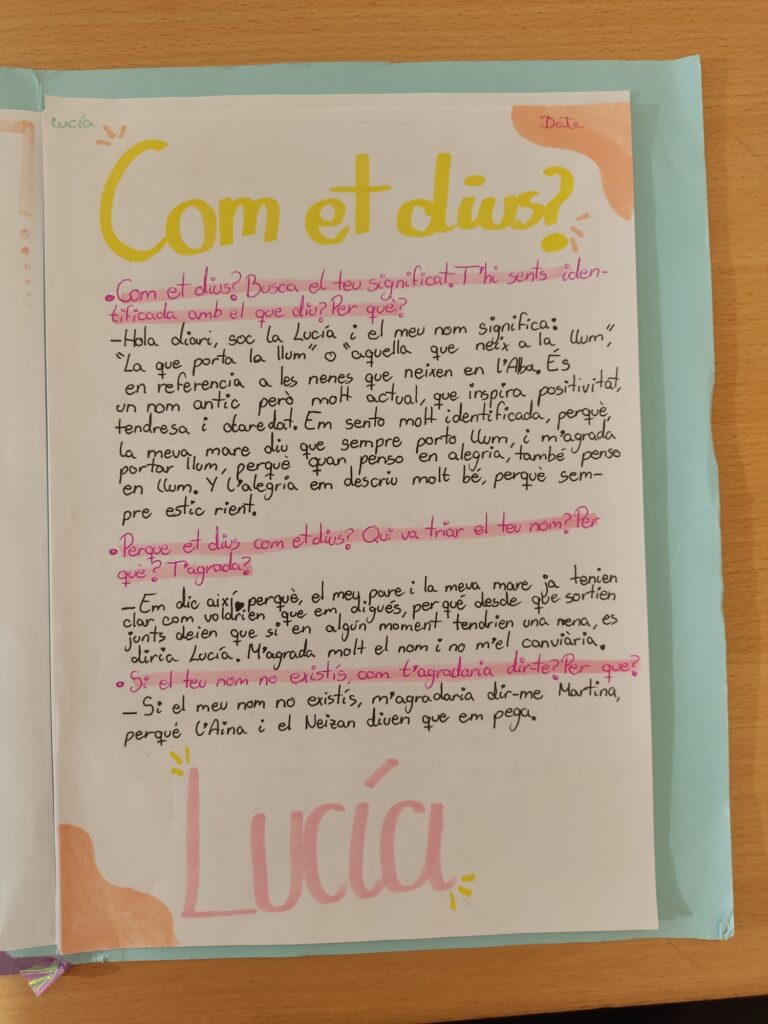 Lucía
Data
Com et dius?
•Com et dius? Busca el teu significat. T'hi sents iden-
tificada amb el que diu? Per què?
-Hola diari, soc la Lucía i el meu nom significa:
"La que porta la llum" o "aquella que neix a la llum",
en referencia a les nenes que neixen en l'Alba. És
un nom antic però molt actual, que inspira positivitat,
tendresa i claredat. Em sento molt identificada, perquè,
la meva mare diu que sempre porto llum, i m'agrada
portar llum, perquè quan penso en alegria, també penso
en llum. Y l'alegria em descriu molt bé, perquè sem-
pre estic rient.
•Perque et dius com et dius? Qui va triar el teu nom? Per
què? T'agrada?
-Em dic així perquè, el meu pare i la meva mare ja tenien
clar com voldrien que em digués, per qué desde que sortien
junts deien que si en algún moment tendrien una nena, es
diria Lucía. M'agrada molt el nom i no m'el canviària.
•Si el teu nom no existís, com t'agradaria dir-te? Per que?
-Si el meu nom no existís, m'agradaria dir-me Martina,
perqué l'Aina i el Neizan diuen que em pega.
Lucía